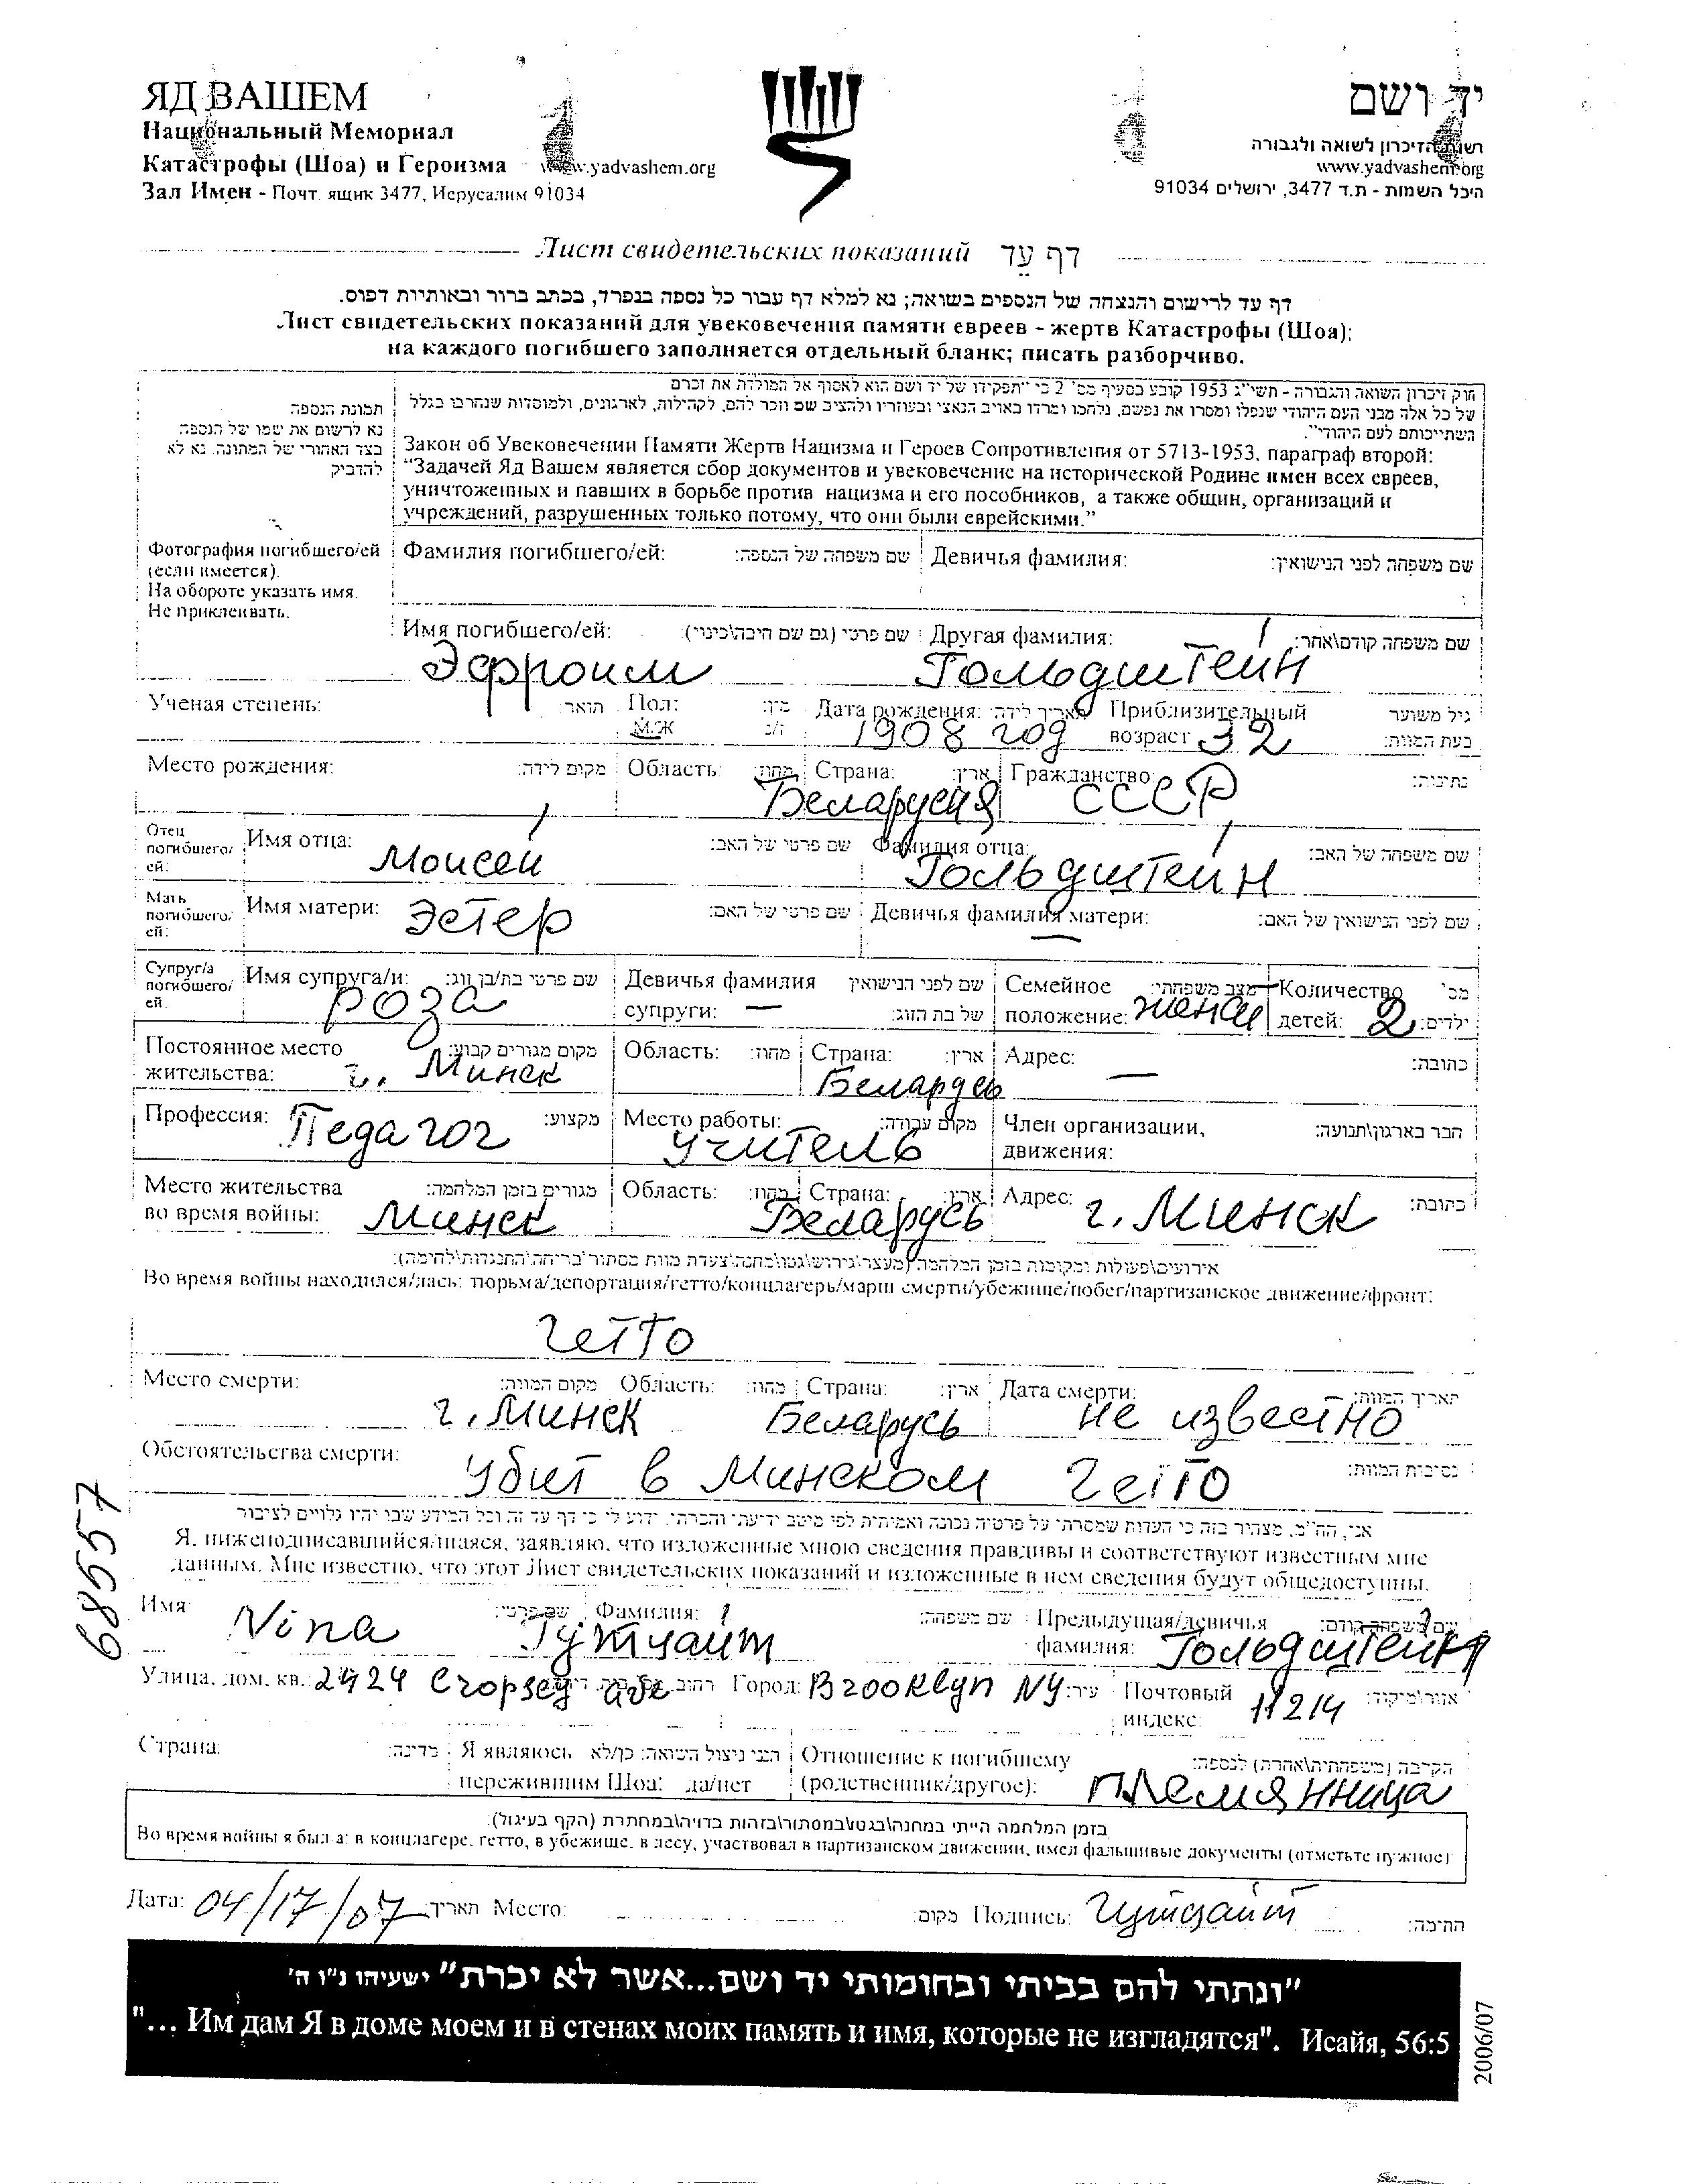 ЯД ВАШЕМ
Национальный Мемориал
Катастрофы (Шоа) и Героизма www.yadvashem.org
Зал Имен - Почт. ящик 3477, Иерусалим 91034
יד ושם
רשות הזיכרון לשואה ולגבורה
www.yadvashem.org
היכל השמות - ת.ד 3477, ירושלים 91034
Лист свидетельских показаний דף עֵד
דף עד לרישום והנצחה של הנספים בשואה; נא למלא דף עבור כל נספה בנפרד, בכתב ברור ובאותיות דפוס.
Лист свидетельских показаний для увековечения памяти евреев - жертв Катастрофы (Шоа);
на каждого погибшего заполняется отдельный бланк; писать разборчиво.
תמונת הנספה
נא לרשום את שמו של הנספה
בצד האחורי של התמונה. נא לא
להדביק
Фотография погибшего/ей
(если имеется).
На обороте указать имя.
Не приклеивать.
חוק זיכרון השואה והגבורה - תשי"ג 1953 קובע בסעיף מס' 2 כי "תפקידו של יד ושם הוא לאסוף אל המולדת את זכרם
של כל אלה מבני העם היהודי שנפלו ומסרו את נפשם, נלחמו ומרדו באויב הנאצי ובעוזריו ולהציב שם וזכר להם, לקהילות, לארגונים, ולמוסדות שנחרבו בגלל
השתייכותם לעם היהודי".
Закон об Увековечении Памяти Жертв Нацизма и Героев Сопротивления от 5713-1953, параграф второй:
“Задачей Яд Вашем является сбор документов и увековечение на исторической Родине имен всех евреев,
уничтоженных и павших в борьбе против нацизма и его пособников, а также общин, организаций и
учреждений, разрушенных только потому, что они были еврейскими.”
Фамилия погибшего/ей: שם משפחה של הנספה: Девичья фамилия: שם משפחה לפני הנישואין:
Имя погибшего/ей: שם פרטי (גם שם חיבה\כינוי): Другая фамилия: שם משפחה קודם\אחר:
Эфроим Гольдштейн
Ученая степень: תואר: Пол: מין: Дата рождения: תאריך לידה: Приблизительный גיל משוער
М/Ж ז/נ 1908 год возраст 32 בעת המוות:
Место рождения: מקום לידה: Область: מחוז: Страна: ארץ: Гражданство: נתינות:
Беларусия СССР
Отец погибшего/ей: Имя отца: שם פרטי של האב: Фамилия отца: שם משפחה של האב:
Моисей Гольдштейн
Мать погибшего/ей: Имя матери: Эстер שם פרטי של האם: Девичья фамилия матери: — שם לפני הנישואין של האם:
Супруг/а погибшего/ей: Имя супруга/и: שם פרטי בת/בן זוג: Девичья фамилия שם לפני הנישואין Семейное מצב משפחתי: Количество מס'
Роза супруги: — של בת הזוג: положение: женат детей: 2 ילדים:
Постоянное место מקום מגורים קבוע: Область: מחוז: Страна: ארץ: Адрес: כתובת:
жительства: г. Минск Беларусь —
Профессия: Педагог מקצוע: Место работы: מקום עבודה: Член организации, חבר בארגון\תנועה:
учитель движения:
Место жительства מגורים בזמן המלחמה: Область: מחוז: Страна: ארץ: Адрес: г. Минск כתובת:
во время войны: Минск Беларусь
אירועים\פעולות ומקומות בזמן המלחמה (מעצר\גירוש\גטו\מחנה\צעדת מוות\מסתור\בריחה\התנגדות\לחימה):
Во время войны находился/лась: тюрьма/депортация/гетто/концлагерь/марш смерти/убежище/побег/партизанское движение/фронт:
гетто
Место смерти: מקום המוות: Область: מחוז: Страна: ארץ: Дата смерти: תאריך המוות:
г. Минск Беларусь не известно
Обстоятельства смерти: נסיבות המוות:
Убит в Минском гетто
אני, הח"מ, מצהיר בזה כי העדות שמסרתי על פרטיה נכונה ואמיתית לפי מיטב ידיעתי והכרתי. ידוע לי כי דף עד זה וכל המידע שבו יהיו גלויים לציבור
Я, нижеподписавшийся/шаяся, заявляю, что изложенные мною сведения правдивы и соответствуют известным мне
данным. Мне известно, что этот Лист свидетельских показаний и изложенные в нем сведения будут общедоступны.
Имя: Nina שם פרטי: Фамилия: שם משפחה: Предыдущая/девичья שם משפחה קודם:
Гутцайт фамилия: Гольдштейн
Улица, дом, кв. 2424 Cropsey ave Город: Brooklyn NY עיר: Почтовый индекс: 11214 אזור\מיקוד:
Страна: מדינה: Я являюсь הנני ניצול השואה: כן/לא Отношение к погибшему הקרבה (משפחתית\אחרת) לנספה:
пережившим Шоа: да/нет (родственник/другое): племянница
בזמן המלחמה הייתי במחנה\בגטו\במסתור\בזהות בדויה\במחתרת (הקף בעיגול):
Во время войны я был/а: в концлагере, гетто, в убежище, в лесу, участвовал в партизанском движении, имел фальшивые документы (отметьте нужное)
Дата: 04/17/07 תאריך: Место: מקום: Подпись: Гутцайт חתימה:
"ונתתי להם בביתי ובחומותי יד ושם...אשר לא יכרת" ישעיהו נ"ו ה'
"... Им дам Я в доме моем и в стенах моих память и имя, которые не изгладятся". Исайя, 56:5
68557
2006/07